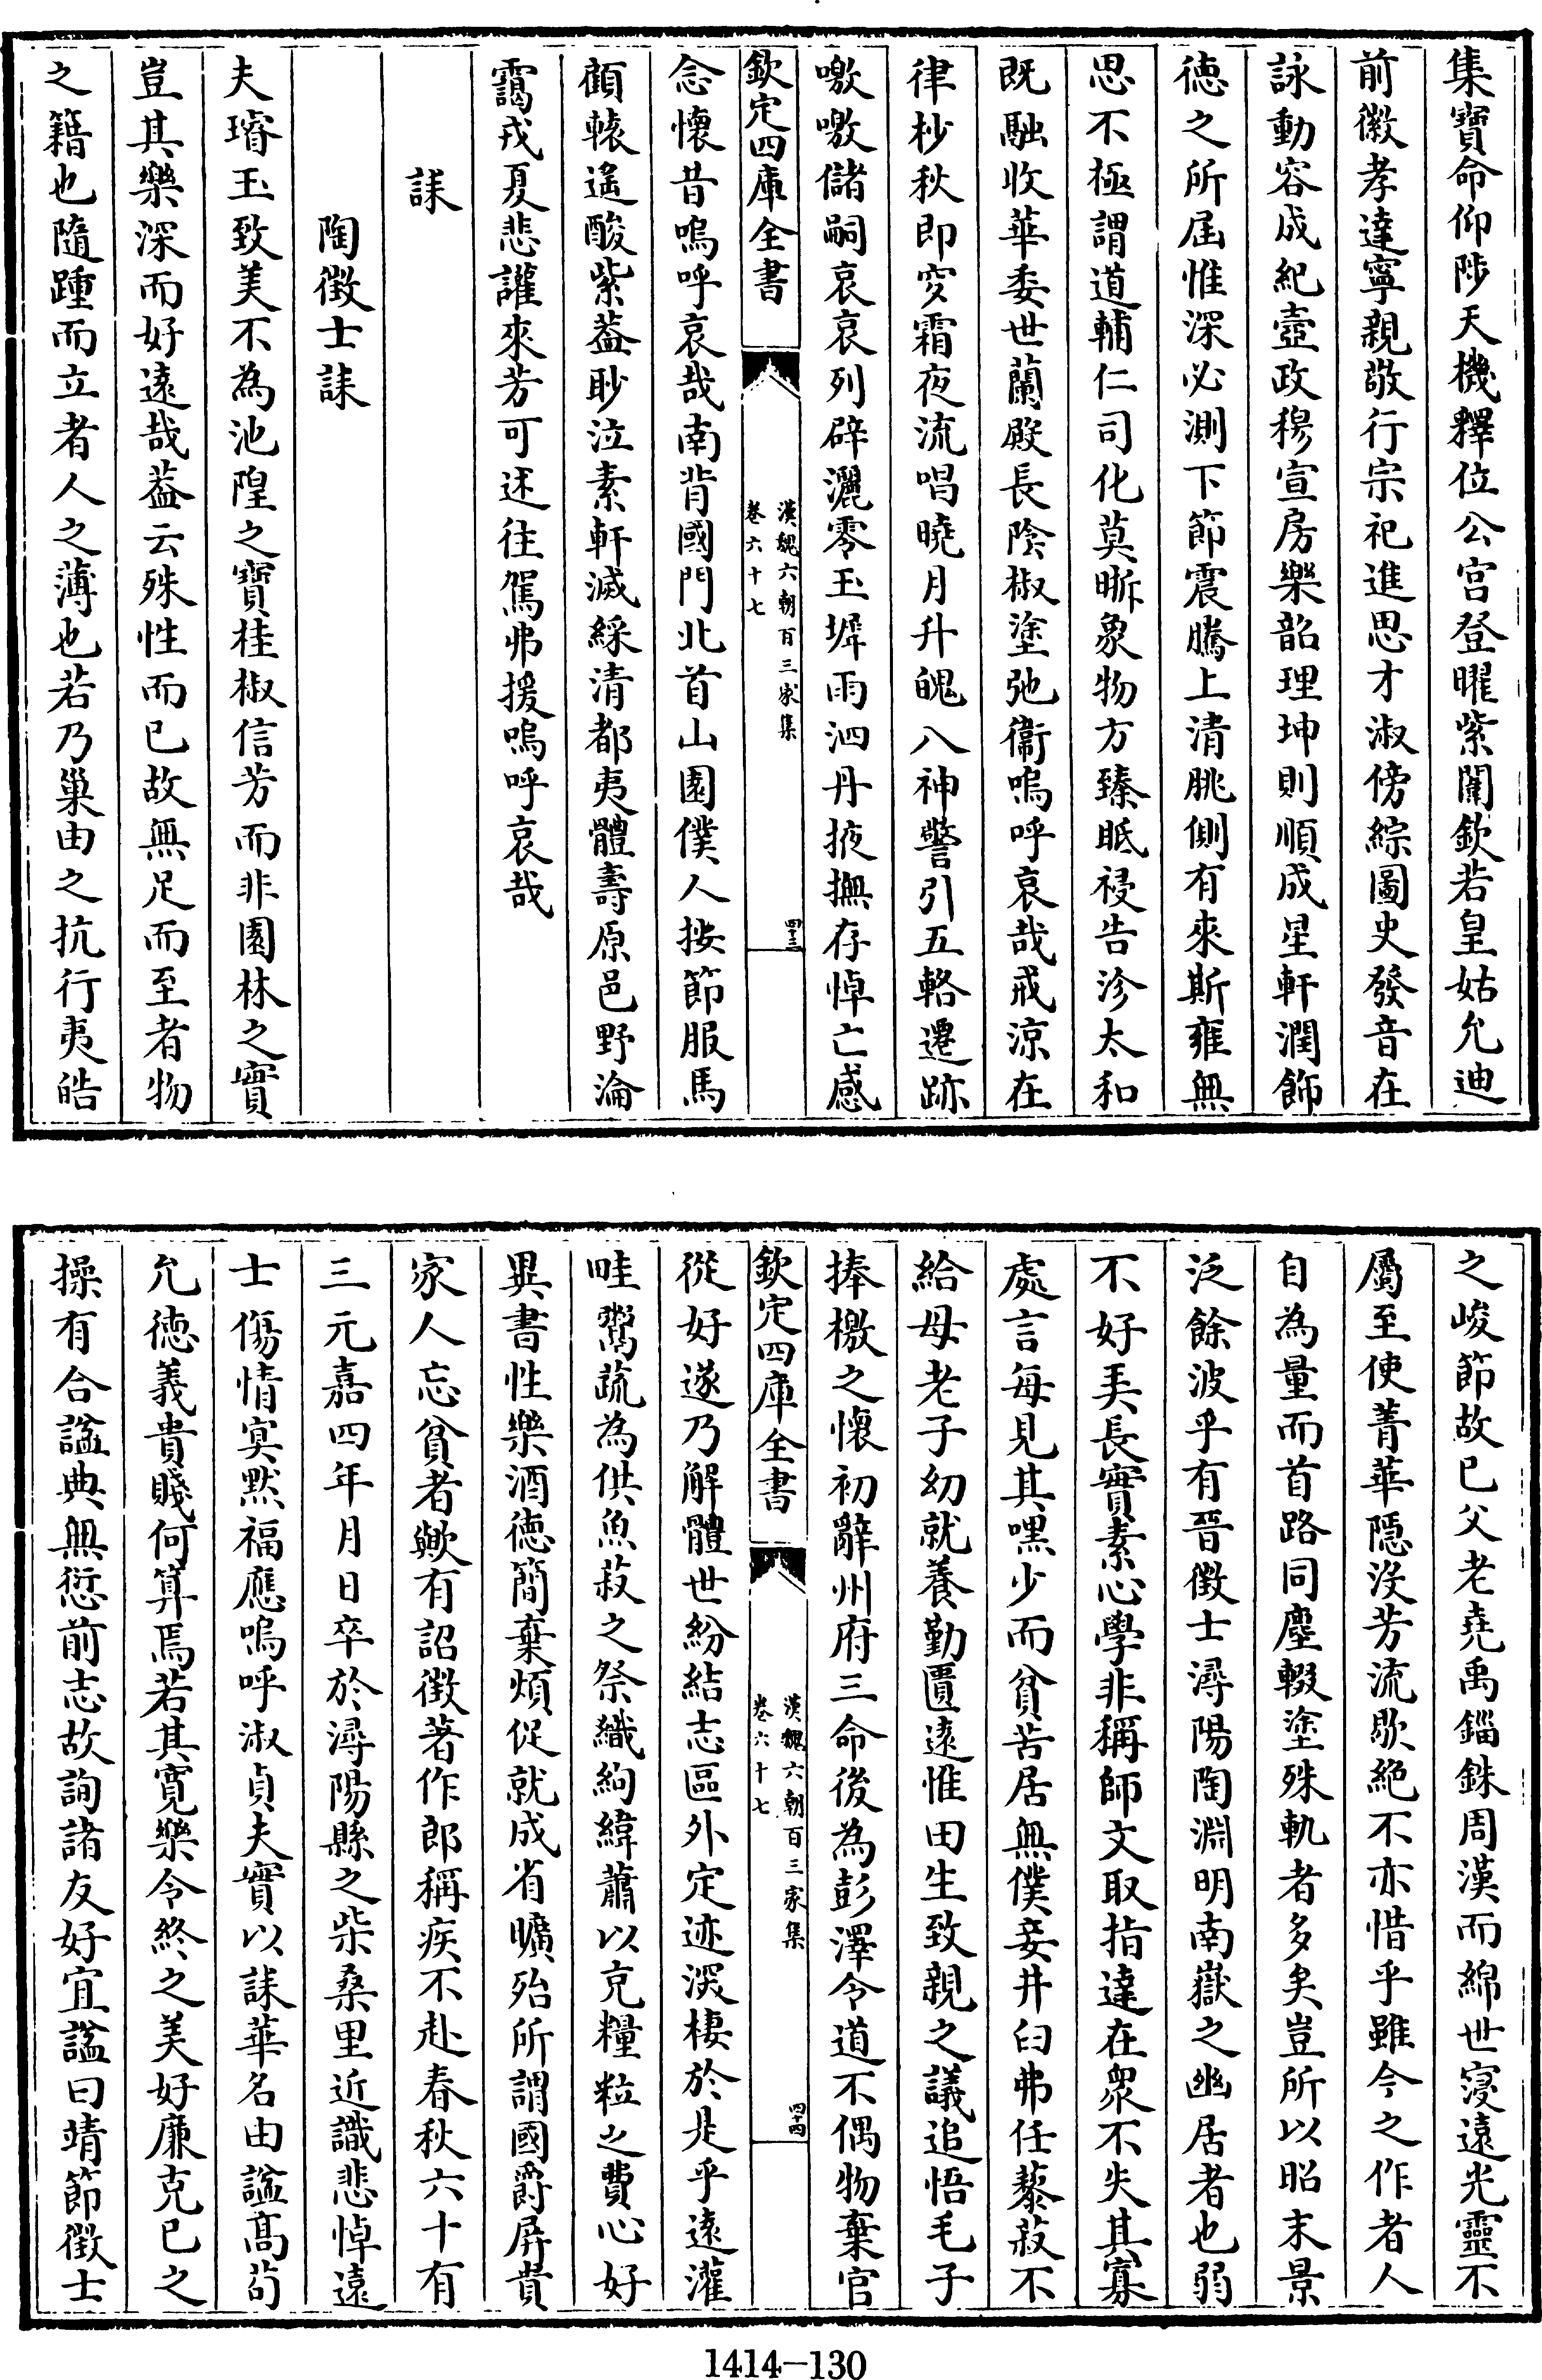 集寳命仰陟天機釋位公宫登曜紫闈欽若皇姑允迪
前徽孝達寧親敬行宗祀進思才淑傍綜圖史發音在
詠動容成紀壼政穆宣房樂韶理坤則順成星軒潤飾
徳之所屆惟深必測下節震騰上清朓側有來斯雍無
思不極謂道輔仁司化莫晣象物方臻眡祲告沴太和
既融收華委世蘭殿長隂椒塗弛衞嗚呼哀哉戒涼在
律杪秋即穸霜夜流唱曉月升魄八神警引五輅遷跡
噭噭儲嗣哀哀列辟灑零玉墀雨泗丹掖撫存悼亡感
欽定四庫全書
漢魏六朝百三家集
卷六十七
四十三
念懐昔嗚呼哀哉南背國門北首山園僕人按節服馬
顧轅遥酸紫葢眇泣素軒滅綵清都夷體壽原邑野淪
靄戎夏悲讙來芳可述往駕弗援嗚呼哀哉
誄
陶徴士誄
夫璿玉致美不為池隍之寳桂椒信芳而非園林之實
豈其樂深而好逺哉葢云殊性而已故無足而至者物
之籍也隨踵而立者人之薄也若乃巢由之抗行夷皓
之峻節故已父老堯禹錙銖周漢而綿世寖逺光靈不
屬至使菁華隠沒芳流歇絶不亦惜乎雖今之作者人
自為量而首路同塵輟塗殊軌者多矣豈所以昭末景
泛餘波乎有晉徴士潯陽陶淵明南嶽之幽居者也弱
不好弄長實素心學非稱師文取指達在衆不失其寡
處言每見其嘿少而貧苦居無僕妾井臼弗任藜菽不
給母老子幼就養勤匱逺惟田生致親之議追悟毛子
捧檄之懐初辭州府三命後為彭澤令道不偶物棄官
欽定四庫全書
漢魏六朝百三家集
卷六十七
四十四
從好遂乃解體世紛結志區外定迹深棲於是乎逺灌
畦鬻蔬為供魚菽之祭織絇緯蕭以充糧粒之費心好
異書性樂酒徳簡棄煩促就成省曠殆所謂國爵屏貴
家人忘貧者歟有詔徴著作郎稱疾不赴春秋六十有
三元嘉四年月日卒於潯陽縣之柴桑里近識悲悼逺
士傷情冥黙福應嗚呼淑貞夫實以誄華名由諡髙茍
允徳義貴賤何算焉若其寛樂令終之美好亷克已之
操有合諡典無愆前志故詢諸友好宜諡曰靖節徴士
1414-130